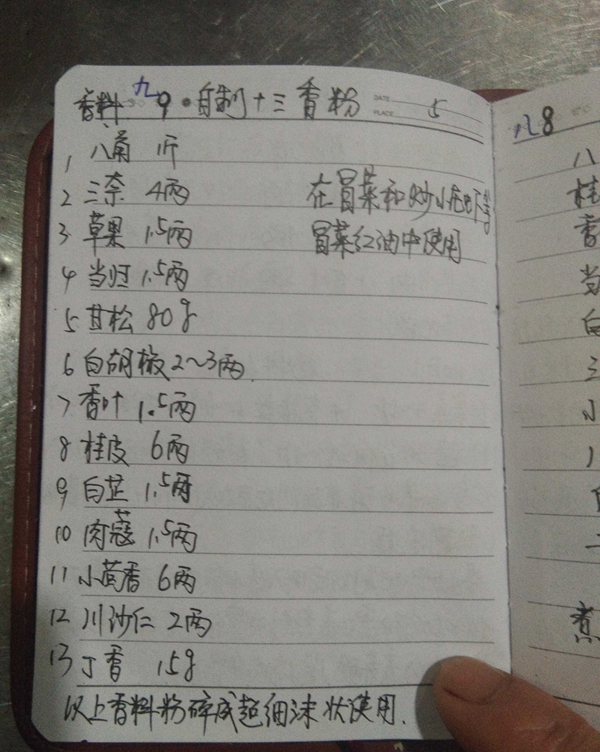 香料 九 9·自制十三香粉 DATE PLACE 5
1 八角 1斤
2 三奈 4两
在冒菜和炒小龙虾
3 草果 1.5两
冒菜红油中使用
4 当归 1.5两
5 甘松 80g
6 白胡椒 2~3两.
7 香叶 1.5两
8 桂皮 6两
9 白芷 1.5两
10 肉蔻 1.5两
11 小茴香 6两
12 川沙仁 2两
13 丁香 15g
以上香料粉碎成超细沫状使用.
八 8
八
桂
香
当
白
三
小